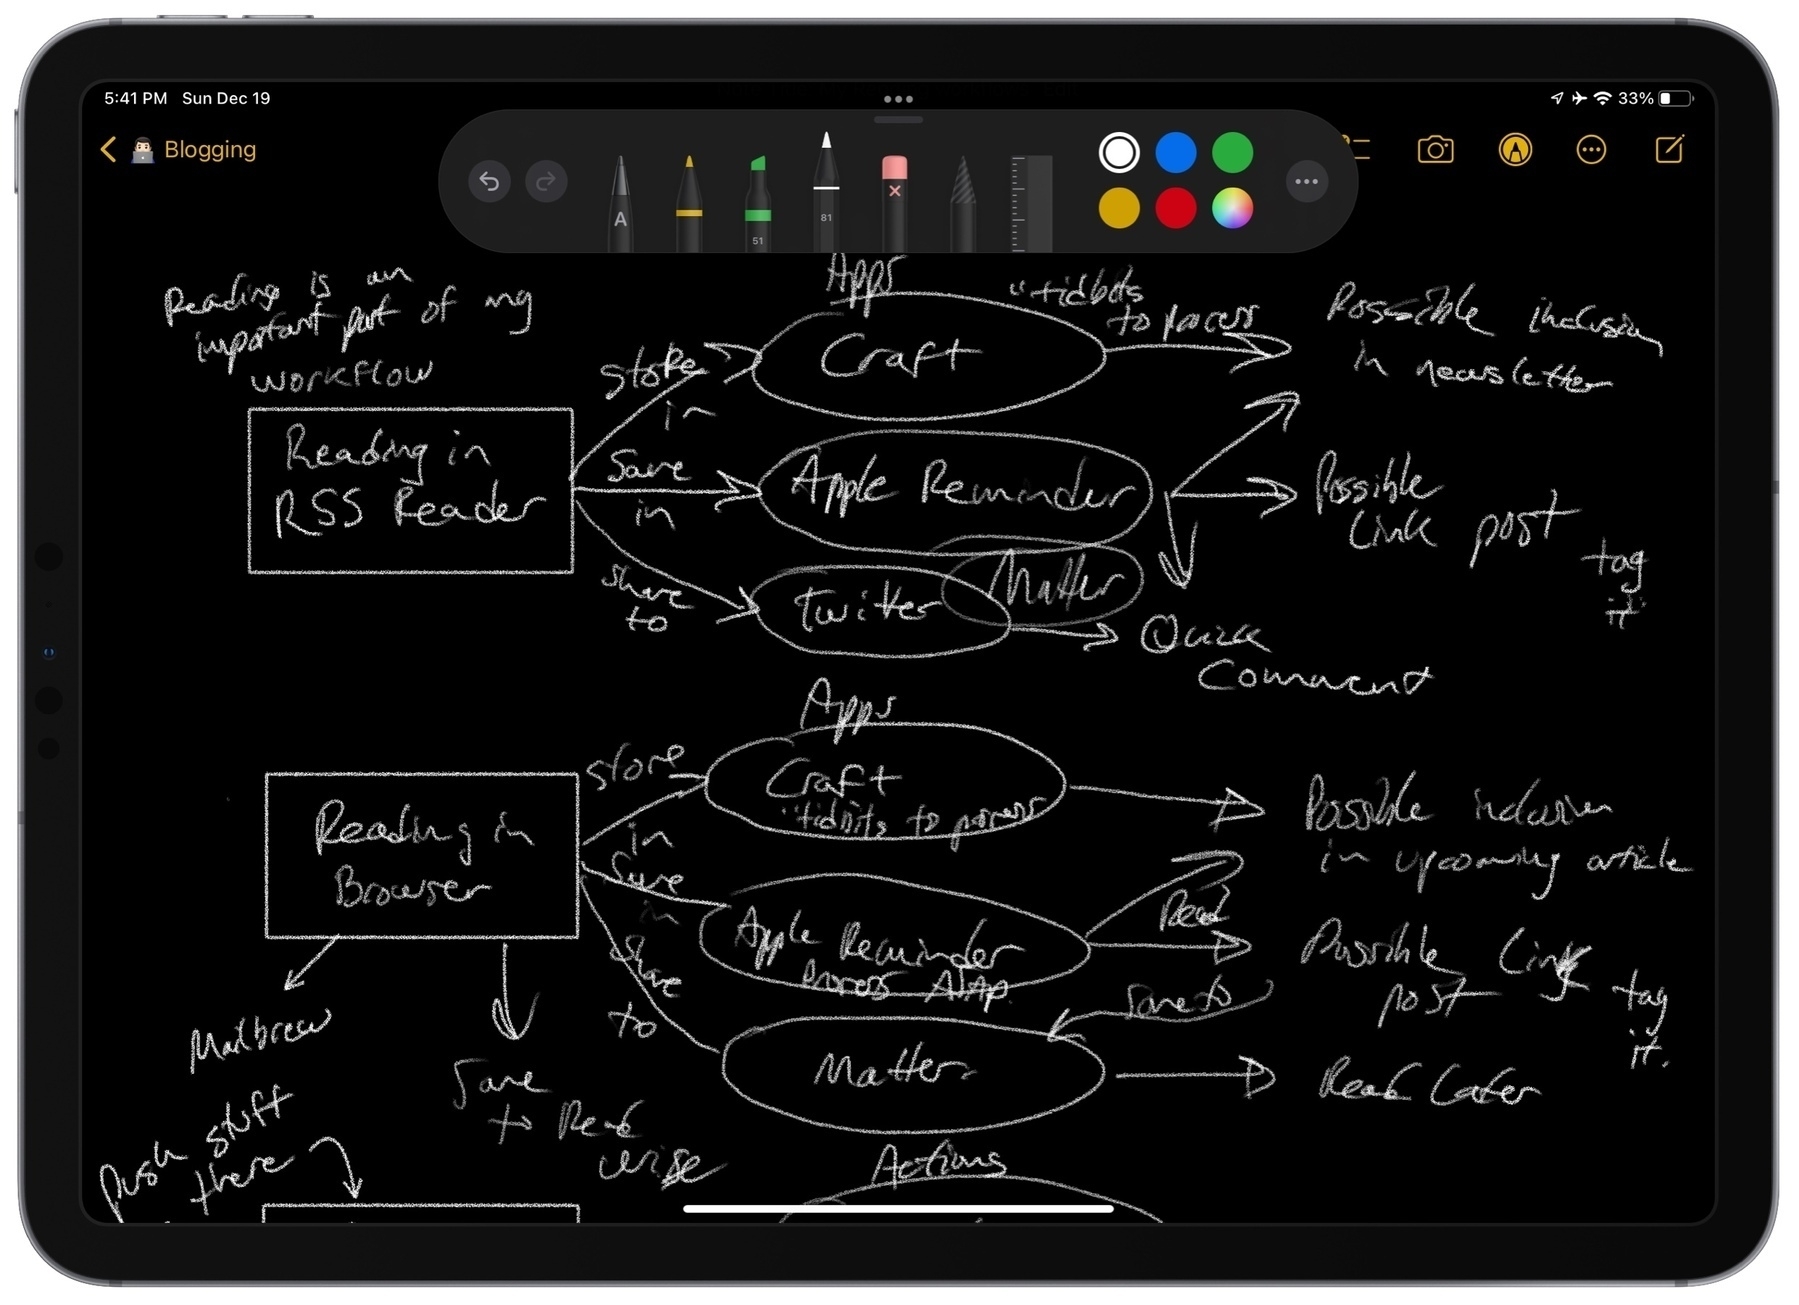 5:41 PM Sun Dec 19
33%
Blogging
A
51
81
Reading is an
important part of my
workflow
Apps
Reading in
RSS Reader
store
in
Craft
"tidbits
to process
Possible inclusion
in newsletter
Save
in
Apple Reminder
Possible
Link post
tag
it
Matter
share
to
Twitter
Quick
Comment
Apps
Reading in
Browser
store
in
Craft
"tidbits to process
Possible inclusion
in upcoming article
Save
in
Apple Reminder
Process ASAP.
Read
Possible Link
post
tag
it.
Share
to
Save to
Matter
Read Later
Mailbrew
Save
to Read
wise
Push stuff
there
Actions